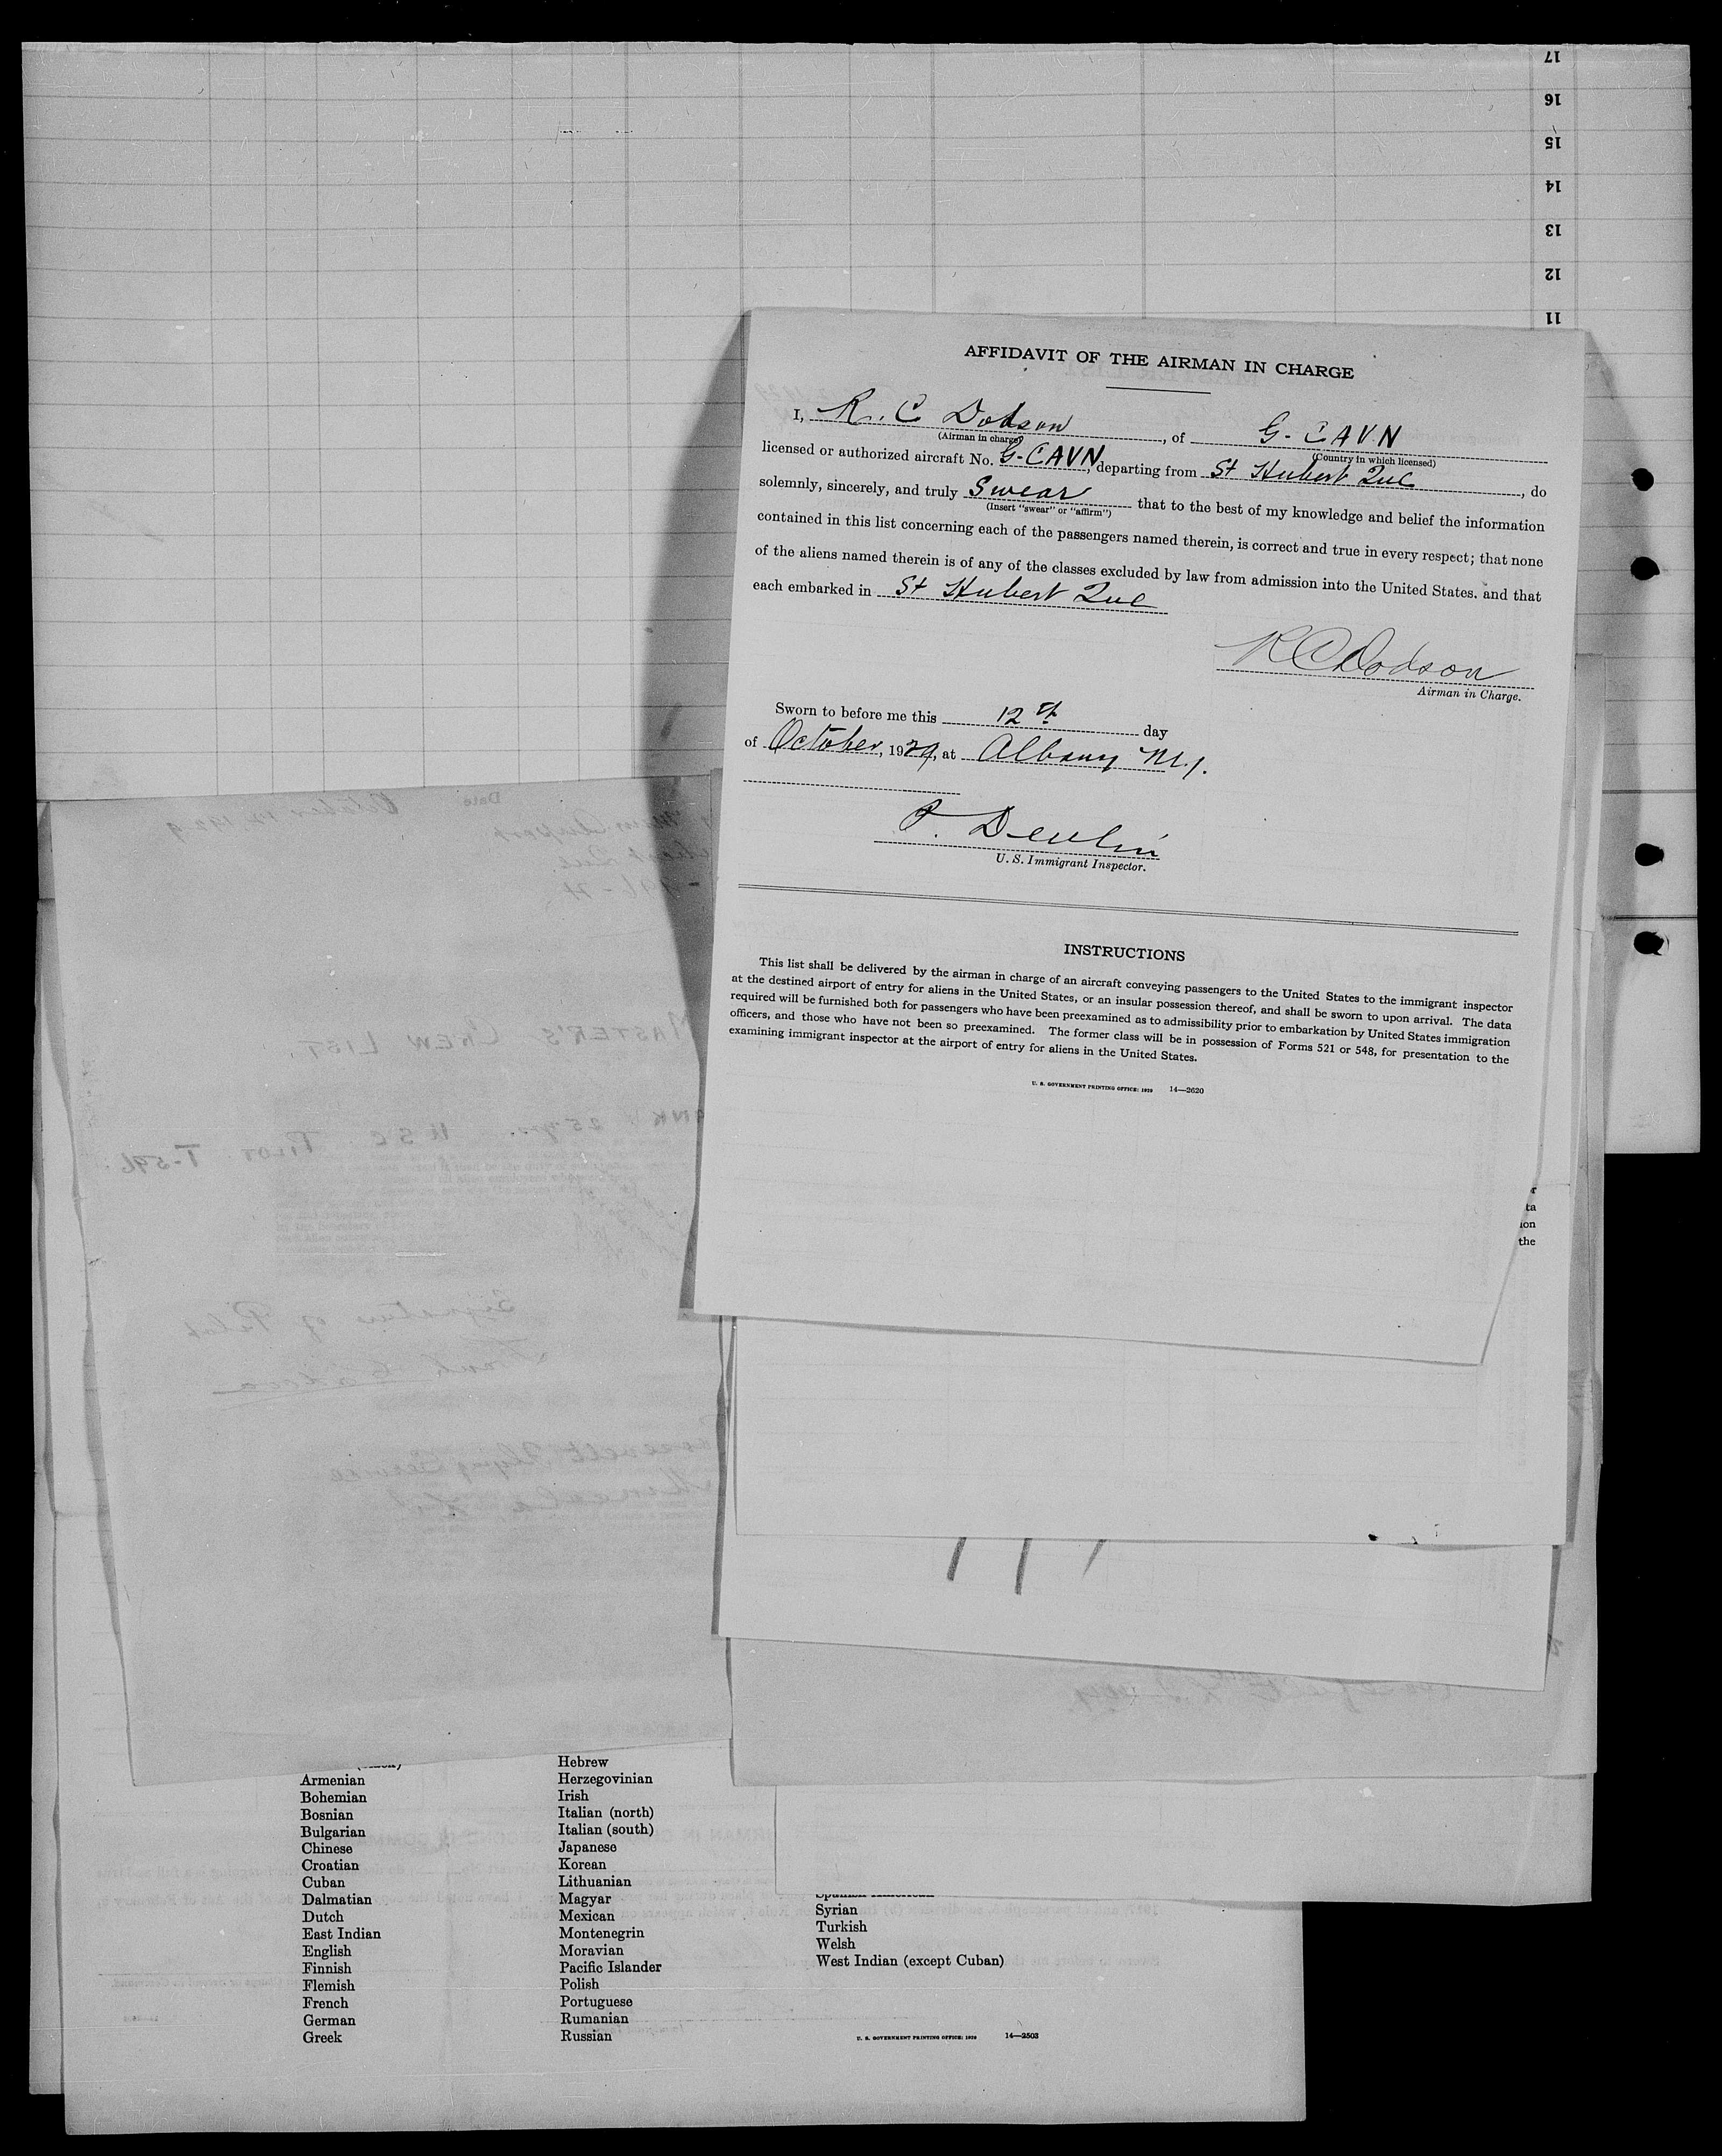 17
16
15
14
13
12
11
AFFIDAVIT OF THE AIRMAN IN CHARGE
I, R. C Dodson, of G-CAVN
(Airman in charge) (Country in which licensed)
licensed or authorized aircraft No. G-CAVN, departing from St Hubert Que, do
solemnly, sincerely, and truly Swear that to the best of my knowledge and belief the information
(Insert "swear" or "affirm")
contained in this list concerning each of the passengers named therein, is correct and true in every respect; that none
of the aliens named therein is of any of the classes excluded by law from admission into the United States. and that
each embarked in St Hubert Que
R C Dodson
Airman in Charge.
Sworn to before me this 12th day
of October, 1929, at Albany N.Y.
P. Devlin
U. S. Immigrant Inspector.
INSTRUCTIONS
This list shall be delivered by the airman in charge of an aircraft conveying passengers to the United States to the immigrant inspector
at the destined airport of entry for aliens in the United States, or an insular possession thereof, and shall be sworn to upon arrival. The data
required will be furnished both for passengers who have been preexamined as to admissibility prior to embarkation by United States immigration
officers, and those who have not been so preexamined. The former class will be in possession of Forms 521 or 548, for presentation to the
examining immigrant inspector at the airport of entry for aliens in the United States.
U. S. GOVERNMENT PRINTING OFFICE: 1929 14—2620
r
ta
ion
the
Date October 12 1929
MASTER'S CREW LIST.
25 yrs. U S C PILOT T-596
Signature of Pilot
Flying Service
Armenian
Bohemian
Bosnian
Bulgarian
Chinese
Croatian
Cuban
Dalmatian
Dutch
East Indian
English
Finnish
Flemish
French
German
Greek
Hebrew
Herzegovinian
Irish
Italian (north)
Italian (south)
Japanese
Korean
Lithuanian
Magyar
Mexican
Montenegrin
Moravian
Pacific Islander
Polish
Portuguese
Rumanian
Russian
Spanish American
Syrian
Turkish
Welsh
West Indian (except Cuban)
U. S. GOVERNMENT PRINTING OFFICE: 1929 14—2503